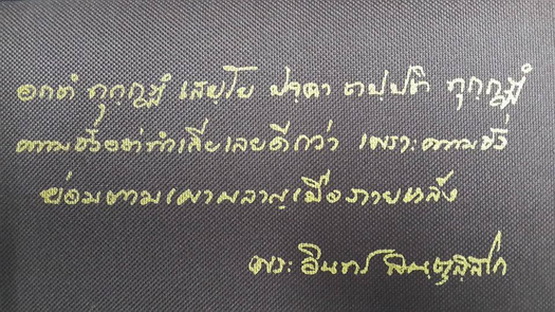 อกตํ ทุกฺกฏํ เสยฺโย ปจฺฉา ตปฺปติ ทุกฺกฏํ
ความชั่วอย่าทำเสียเลยดีกว่า เพราะความชั่ว
ย่อมตามเผาผลาญเมื่อภายหลัง
พระอินทร์ สนฺตุสฺสโก